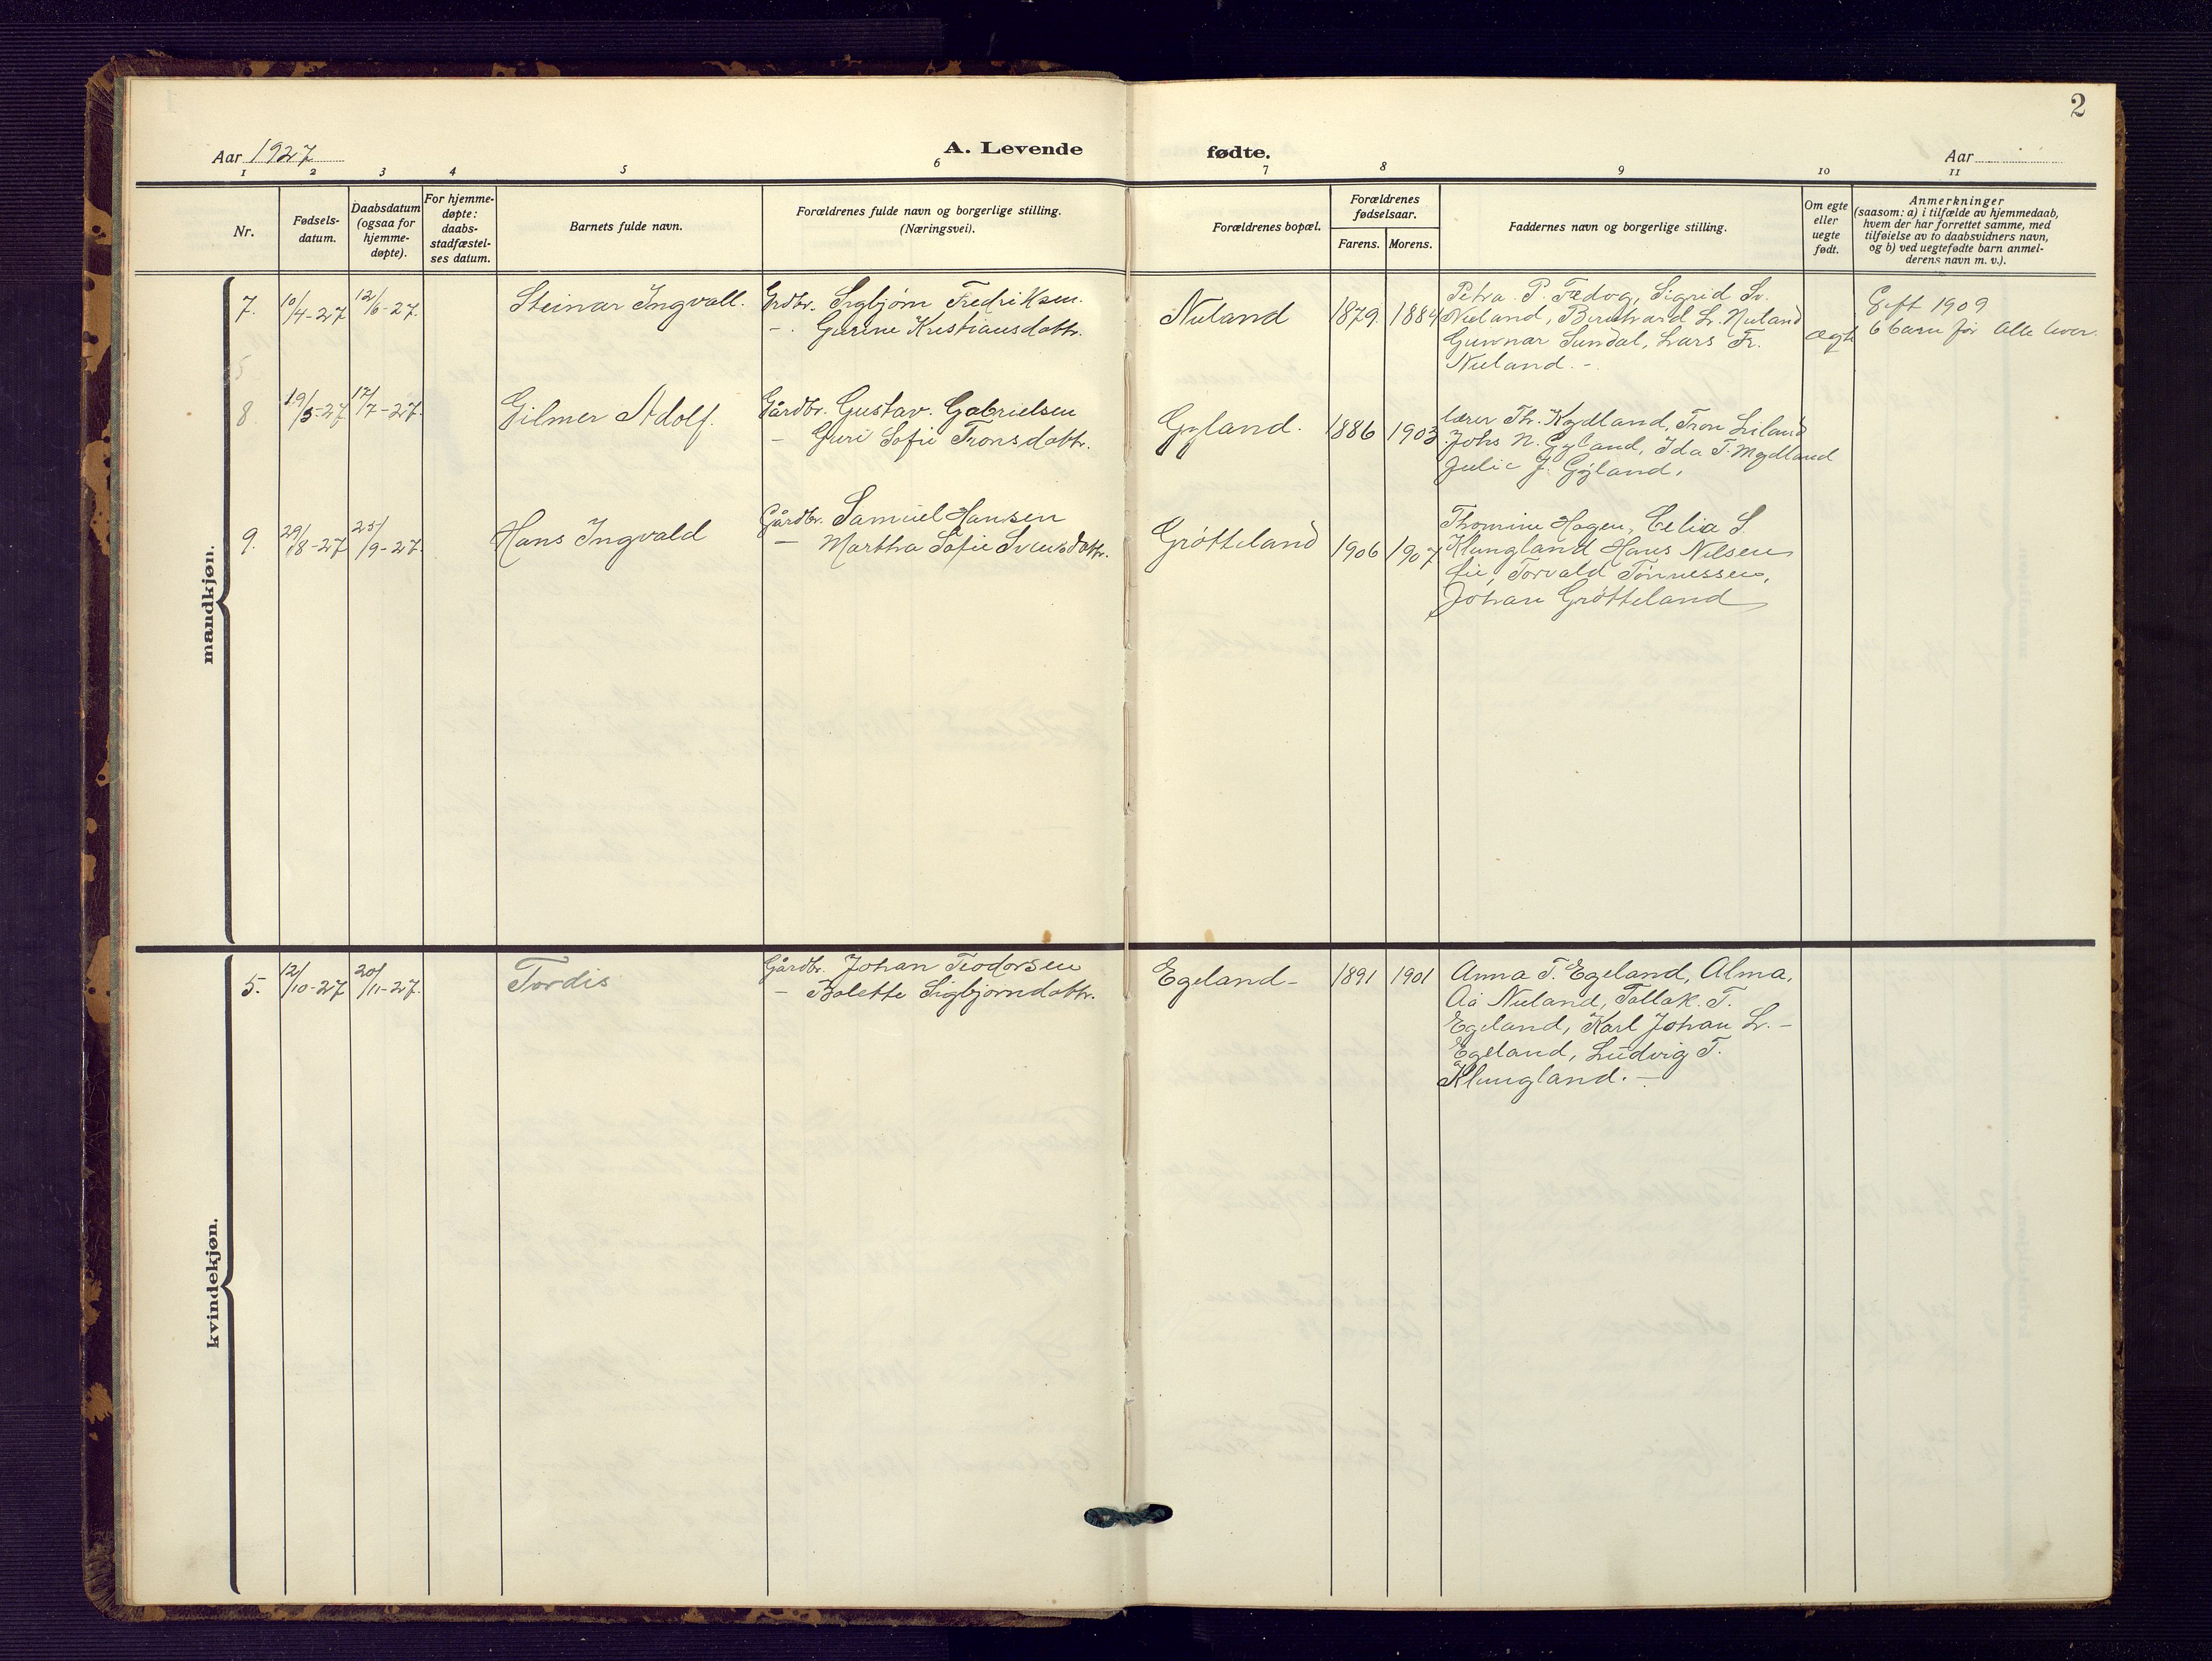 2
Aar 1927
A. Levende fødte.
Aar
1 2 3 4 5 6 7 8 9 10 11
Nr.
Fødsels-
datum.
Daabsdatum
(ogsaa for
hjemme-
døpte).
For hjemme-
døpte:
daabs-
stadfæstel-
ses datum.
Barnets fulde navn.
Forældrenes fulde navn og borgerlige stilling.
(Næringsvei).
Forældrenes bopæl.
Forældrenes
fødselsaar.
Farens. Morens.
Faddernes navn og borgerlige stilling.
Om egte
eller
uegte
født.
Anmerkninger
(saasom: a) i tilfælde av hjemmedaab,
hvem der har forrettet samme, med
tilføielse av to daabsvidners navn,
og b) ved uegtefødte barn anmel-
derens navn m. v.).
mandkjøn.
7. 10/4-27 12/6-27. Steinar Ingvall.
Grdbr. Sigbjørn Fredriksen.
-. Gurine Kristiansdattr.
Nuland 1879 1884
Petra P. Fedog, Sigrid Sv.
Nuland, Bernhard L. Nuland
Gunnar Sundal, Lars Fr.
Nuland. -
ægte
Gift 1909
6 barn før Alle lever.
8. 19/5-27 17/7-27. Gilmer Adolf.
Gårdbr. Gustav. Gabrielsen
- Guri Sofie Tronsdattr.
Gyland. 1886 1903
lærer Th. Kydland, Tron Liland
Johs N. Gyland, Ida T. Mydland
Julie J. Gyland.
9. 29/8-27 25/9-27. Hans Ingvald
Gårdbr. Samuel Hansen
- Martha Sofie Svensdattr.
Grøtteland 1906 1907
Thomine Hagen, Celia S.
Klungland Hans Nilsen
Lie, Torvald Tønnessen,
Johan Grøtteland
kvindekjøn.
5. 12/10-27 20/11-27. Tordis
Gårdbr. Johan Teodorsen
- Bolette Sigbjørndattr.
Egeland- 1891 1901
Anna T. Egeland, Alma,
Aa Nuland, Tallak. T.
Egeland, Karl Johan L. -
Egeland, Ludvig T.
Klungland. -